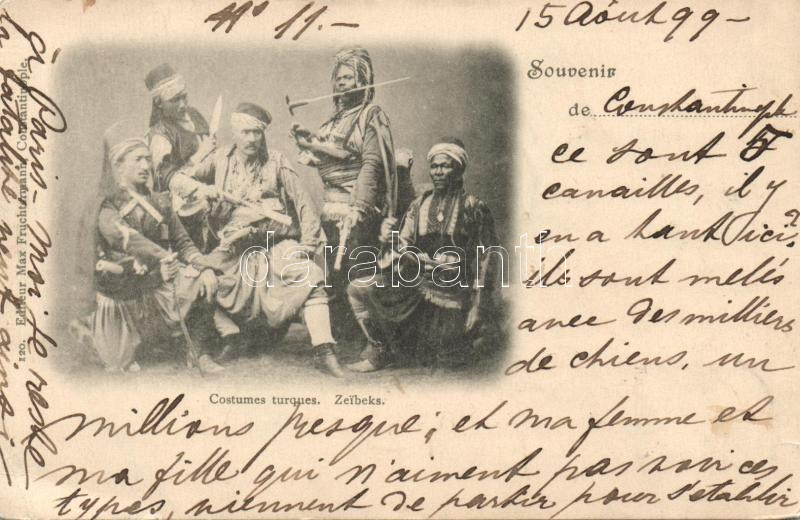 No 11.—
15 Août 99—
Souvenir
de Constantinople
ce sont 5
canailles, il y
en a tant ici,
ils sont melés
avec des milliers
de chiens, un
millions presque; et ma femme et
ma fille qui n'aiment pas voir ces
types, viennent de partir pour s'etablir
à Paris— Moi je reste
Costumes turques. Zeïbeks.
120. Editeur Max Fruchtermann, Constantinople.
darabanth